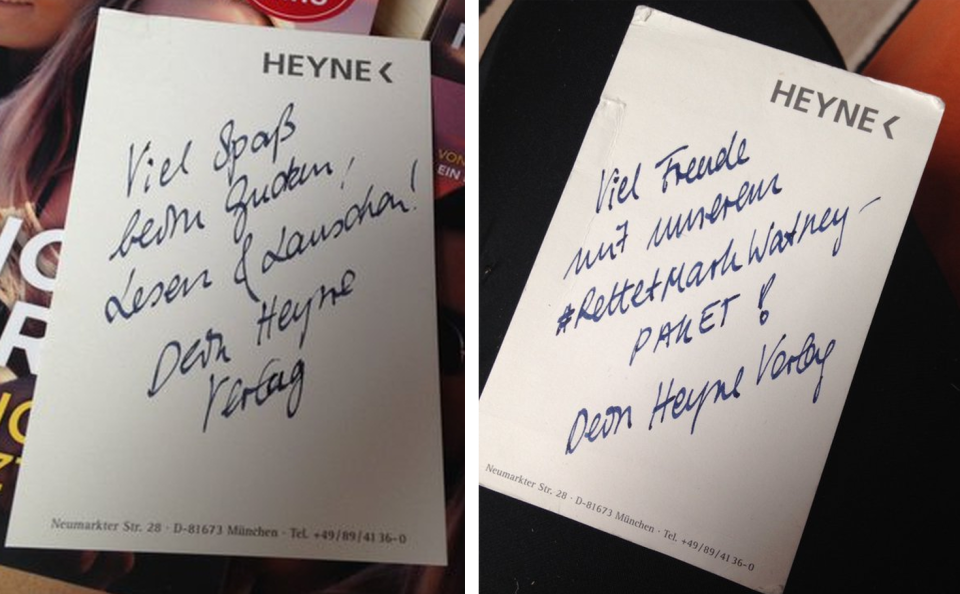 HEYNE <
Viel Spaß
beim Gucken,
Lesen & Lauschen!
Dein Heyne
Verlag
Neumarkter Str. 28 · D-81673 München · Tel. +49/89/41 36-0
HEYNE <
Viel Freude
mit unserem
#RettetMarkWatney-
PAKET!
Dein Heyne Verlag
Neumarkter Str. 28 · D-81673 München · Tel. +49/89/41 36-0